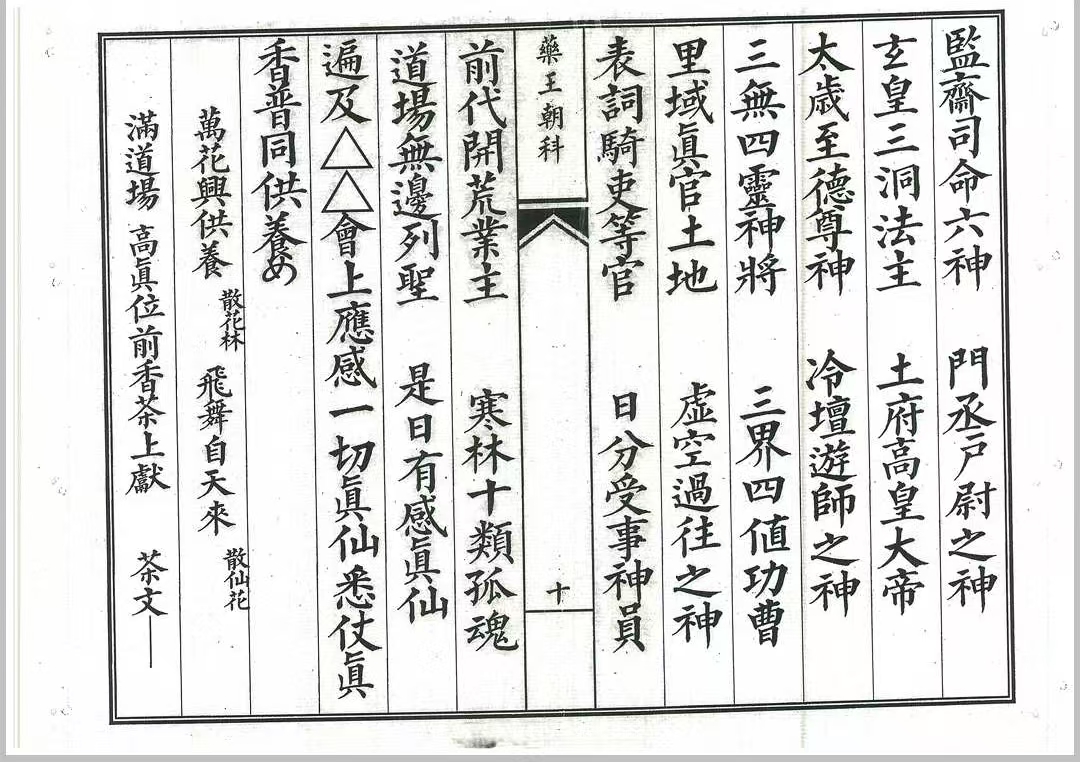 監齋司命六神　門丞戶尉之神
玄皇三洞法主　土府高皇大帝
太歲至德尊神　冷壇遊師之神
三無四靈神將　三界四値功曹
里域眞官土地　虛空過往之神
表詞騎吏等官　日分受事神員
藥王朝科　十
前代開荒業主　寒林十類孤魂
道場無邊列聖　是日有感眞仙
遍及△△會上應感一切眞仙悉仗眞
香普同供養
萬花興供養　散花林　飛舞自天來　散仙花
滿道場　高眞位前香茶上獻　茶文——